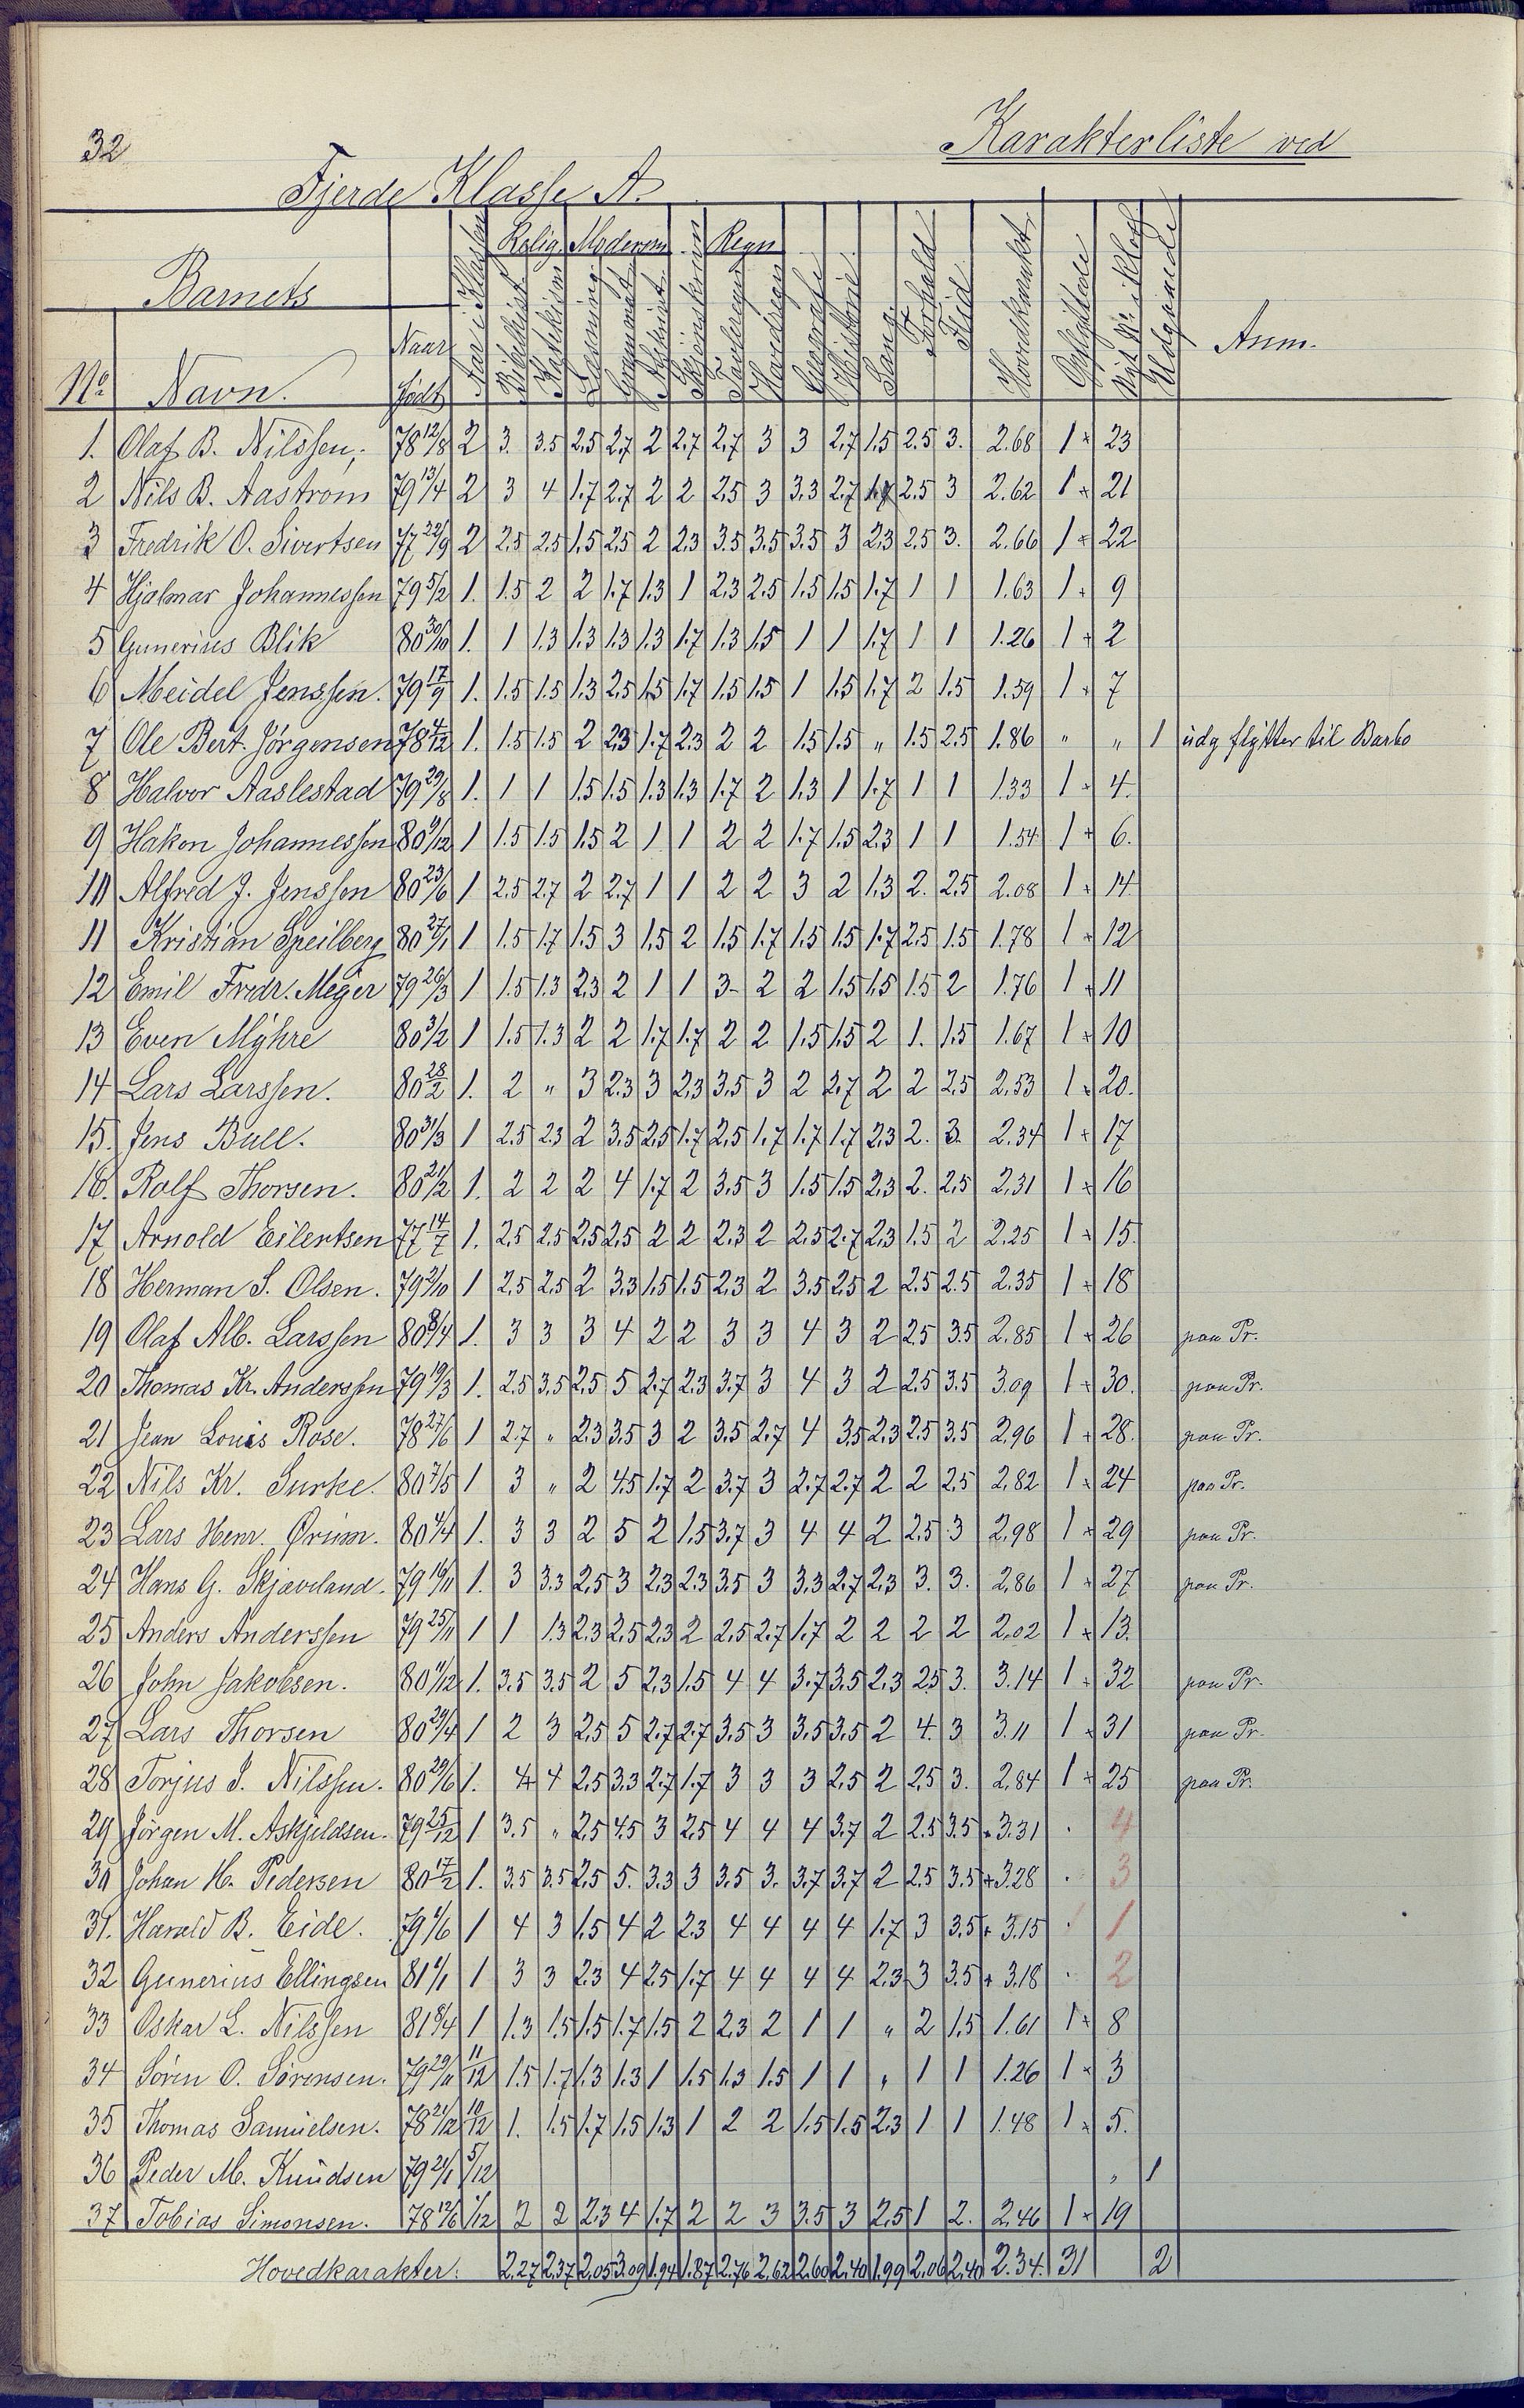 32
Karakterliste ved
Fjerde Klasse A.
Relig. Modersm. Regn
Barnets
Anm.
No. Navn. Naar født Aar i Klassen Bibelhist. Katekism Læsning Grammat. Skjønskrivn Tavleregn Hovedregn Geografi Historie Sang Forhold Flid Hovedkarakt. Opflyttede Udgaaede
1. Olaf B. Nilssen, 78 12/8 2 3. 3.5 2.5 2.7 2 2.7 2.7 3 3 2.7 1.5 2.5 3. 2.68 1 + 23
2 Nils B. Aastrom 79 13/4 2 3 4 1.7 2.7 2 2 2.5 3 3.3 2.7 1.7 2.5 3 2.62 1 + 21
3 Fredrik O. Sivertsen 77 22/9 2 2.5 2.5 1.5 2.5 2 2.3 3.5 3.5 3.5 3 2.3 2.5 3. 2.66 1 + 22
4 Hjalmar Johannessen 79 5/2 1. 1.5 2 2 1.7 1.3 1 2.3 2.5 1.5 1.5 1.7 1 1 1.63 1 + 9
5 Gunerius Blik 80 30/10 1. 1 1.3 1.3 1.3 1.3 1.7 1.3 1.5 1 1 1.7 1 1 1.26 1 + 2
6 Meidel Jenssen. 79 17/9 1. 1.5 1.5 1.3 2.5 1.5 1.7 1.5 1.5 1 1.5 1.7 2 1.5 1.59 1 + 7
7 Ole Bert. Jörgensen 78 4/12 1. 1.5 1.5 2 2.3 1.7 2.3 2 2 1.5 1.5 " 1.5 2.5 1.86 " " 1 udg flytter til Barbo
8 Halvor Aaslestad 79 29/8 1. 1 1 1.5 1.5 1.3 1.3 1.7 2 1.3 1 1.7 1 1 1.33 1 + 4.
9 Hakon Johannessen 80 9/12 1 1.5 1.5 1.5 2 1 1 2 2 1.7 1.5 2.3 1 1 1.54 1 + 6.
10 Alfred J. Jenssen 80 23/6 1 2.5 2.7 2 2.7 1 1 2 2 3 2 1.3 2. 2.5 2.08 1 + 14
11 Kristian Speilberg 80 27/1 1 1.5 1.7 1.5 3 1.5 2 1.5 1.7 1.5 1.5 1.7 2.5 1.5 1.78 1 + 12
12 Emil Fredr. Meyer 79 26/3 1 1.5 1.3 2.3 2 1 1 3- 2 2 1.5 1.5 1.5 2 1.76 1 + 11
13 Even Myhre 80 3/2 1 1.5 1.3 2 2 1.7 1.7 2 2 1.5 1.5 2 1. 1.5 1.67 1 + 10
14 Lars Larssen. 80 28/2 1. 2 " 3 2.3 3 2.3 3.5 3 2 2.7 2 2 2.5 2.53 1 + 20.
15. Jens Bull. 80 31/3 1 2.5 2.3 2 3.5 2.5 1.7 2.5 1.7 1.7 1.7 2.3 2. 3. 2.34 1 + 17
16. Rolf Thorsen. 80 21/2 1. 2 2 2 4 1.7 2 3.5 3 1.5 1.5 2.3 2. 2.5 2.31 1 + 16
17 Arnold Eilertsen 77 14/7 1. 2.5 2.5 2.5 2.5 2 2 2.3 2 2.5 2.7 2.3 1.5 2 2.25 1 + 15.
18 Herman S. Olsen. 79 2/10 1 2.5 2.5 2 3.3 1.5 1.5 2.3 2 3.5 2.5 2 2.5 2.5 2.35 1 + 18
19 Olaf Alb. Larssen 80 8/4 1. 3 3 3 4 2 2 3 3 4 3 2 2.5 3.5 2.85 1 + 26 paa Pr.
20 Thomas Kr. Anderssen 79 19/3 1. 2.5 3.5 2.5 5 2.7 2.3 3.7 3 4 3 2 2.5 3.5 3.09 1 + 30. paa Pr.
21 Jean Louis Rose. 78 27/6 1 2.7 " 2.3 3.5 3 2 3.5 2.7 4 3.5 2.3 2.5 3.5 2.96 1 + 28. paa Pr.
22 Nils Kr. Surke. 80 7/5 1 3 " 2 4.5 1.7 2 3.7 3 2.7 2.7 2 2 2.5 2.82 1 + 24 paa Pr.
23 Lars Henr. Ørum. 80 4/4 1. 3 3 2 5 2 1.5 3.7 3 4 4 2 2.5 3 2.98 1 + 29 paa Pr.
24 Hans G. Skjæveland. 79 16/11 1. 3 3.3 2.5 3 2.3 2.3 3.5 3 3.3 2.7 2.3 3. 3. 2.86 1 + 27 paa Pr.
25 Anders Anderssen 79 25/11 1 1 1.3 2.3 2.5 2.3 2 2.5 2.7 1.7 2 2 2 2 2.02 1 + 13.
26 John Jakobsen. 80 11/12 1. 3.5 3.5 2 5 2.3 1.5 4 4 3.7 3.5 2.3 2.5 3. 3.14 1 + 32 paa Pr.
27 Lars Thorsen 80 29/4 1 2 3 2.5 5 2.7 2.7 3.5 3 3.5 3.5 2 4. 3 3.11 1 + 31 paa Pr.
28 Torjus J. Nilssen. 80 29/6 1. 4 4 2.5 3.3 2.7 1.7 3 3 3 2.5 2 2.5 3. 2.84 1 + 25 paa Pr.
29 Jörgen M. Askjeldsen. 79 25/12 1 3.5 " 2.5 4.5 3 2.5 4 4 4 3.7 2 2.5 3.5 + 3.31 . 4
30 Johan H. Pedersen 80 17/2 1. 3.5 3.5 2.5 5. 3.3 3 3.5 3. 3.7 3.7 2 2.5 3.5 + 3.28 . 3
31. Harald B. Eide. 79 1/6 1 4 3 1.5 4 2 2.3 4 4 4 4 1.7 3 3.5 + 3.15 . 1
32 Gunerius Ellingsen 81 1/1 1 3 3 2.3 4 2.5 1.7 4 4 4 4 2.3 3 3.5 + 3.18 . 2
33 Oskar L. Nilssen 81 8/4 1 1.3 1.5 1.5 1.7 1.5 2 2.3 2 1 1 " 2 1.5 1.61 1 + 8
34 Sören O. Sörensen. 79 29/11 11/12 1.5 1.7 1.3 1.3 1 1.5 1.3 1.5 1 1 " 1 1 1.26 1 + 3
35 Thomas Samuelsen. 78 21/12 10/12 1. 1.5 1.7 1.5 1.3 1 2 2 1.5 1.5 2.3 1 1 1.48 1 + 5.
36 Peder M. Knudsen 79 21/1 5/12 " 1
37 Tobias Simonsen. 78 12/6 1/12 2 2 2.3 4 1.7 2 2 3 3.5 3 2.5 1 2. 2.46 1 + 19
Hovedkarakter. 2.27 2.37 2.05 3.09 1.94 1.87 2.76 2.62 2.60 2.40 1.99 2.06 2.40 2.34. 31 2